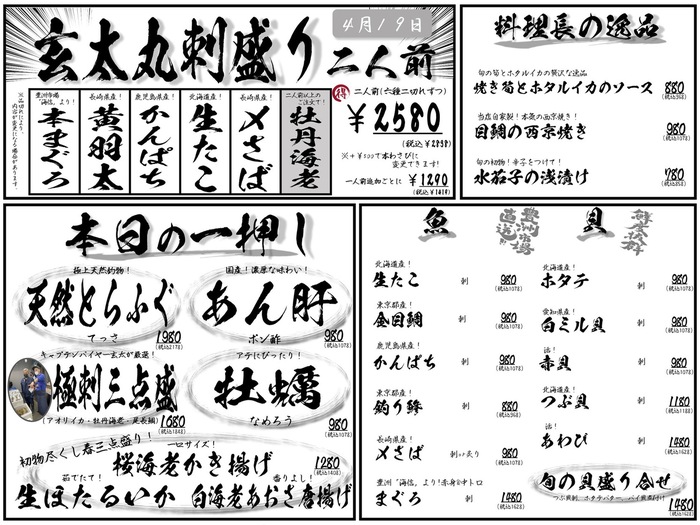 4月19日
玄太丸刺盛り二人前
豊洲市場「海信」より!
本まぐろ
長崎県産!
黄羽太
鹿児島県産!
かんぱち
北海道産!
生たこ
長崎県産!
〆さば
二人前以上のご注文で!
牡丹海老
※品切れにより、内容が変更になる場合があります。
得 二人前(六種二切れずつ)
¥2580
(税込¥2838)
※+¥500で本わさびに変更できます!
一人前追加ごとに ¥1290
(税込¥1419)
料理長の逸品
旬の筍とホタルイカの贅沢な逸品
焼き筍とホタルイカのソース 880
(税込968)
当店自家製!本装の西京焼き!
目鯛の西京焼き 980
(税込1078)
旬の初物!辛子をつけて!
水茄子の浅漬け 780
(税込858)
本日の一押し
極上天然初物!
天然とらふぐ
てっさ 1980
(税込2178)
国産!濃厚な味わい!
あん肝
ポン酢 980
(税込1078)
キャプテンバイヤー玄太が厳選!
極刺三点盛
(アオリイカ・牡丹海老・尾長鯛) 1680
(税込1848)
アテにぴったり!
牡蠣
なめろう 980
(税込1078)
初物尽くし春三点盛り!
一口サイズ!
桜海老かき揚げ 1280
(税込1408)
茹でたて!
生ほたるいか
香りよし!
白海老あおさ唐揚げ
魚
豊洲市場直送!!
北海道産!
生たこ 刺 980
(税込1078)
東京都産!
金目鯛 刺 980
(税込1078)
鹿児島県産!
かんぱち 刺 980
(税込1078)
東京都産!
釣り鯵 刺 880
(税込968)
長崎県産!
〆さば 刺or炙り 980
(税込1078)
豊洲「海信」より!赤身&中トロ
まぐろ 刺 1480
(税込1628)
貝
鮮度抜群
北海道産!
ホタテ 刺 980
(税込1078)
愛知県産!
白ミル貝 刺 980
(税込1078)
活!
赤貝 刺 980
(税込1078)
北海道産!
つぶ貝 刺 1180
(税込1298)
活!
あわび 刺 1480
(税込1628)
旬の貝盛り合せ
つぶ貝刺、ホタテバター、バイ貝煮付け 1480
(税込1628)